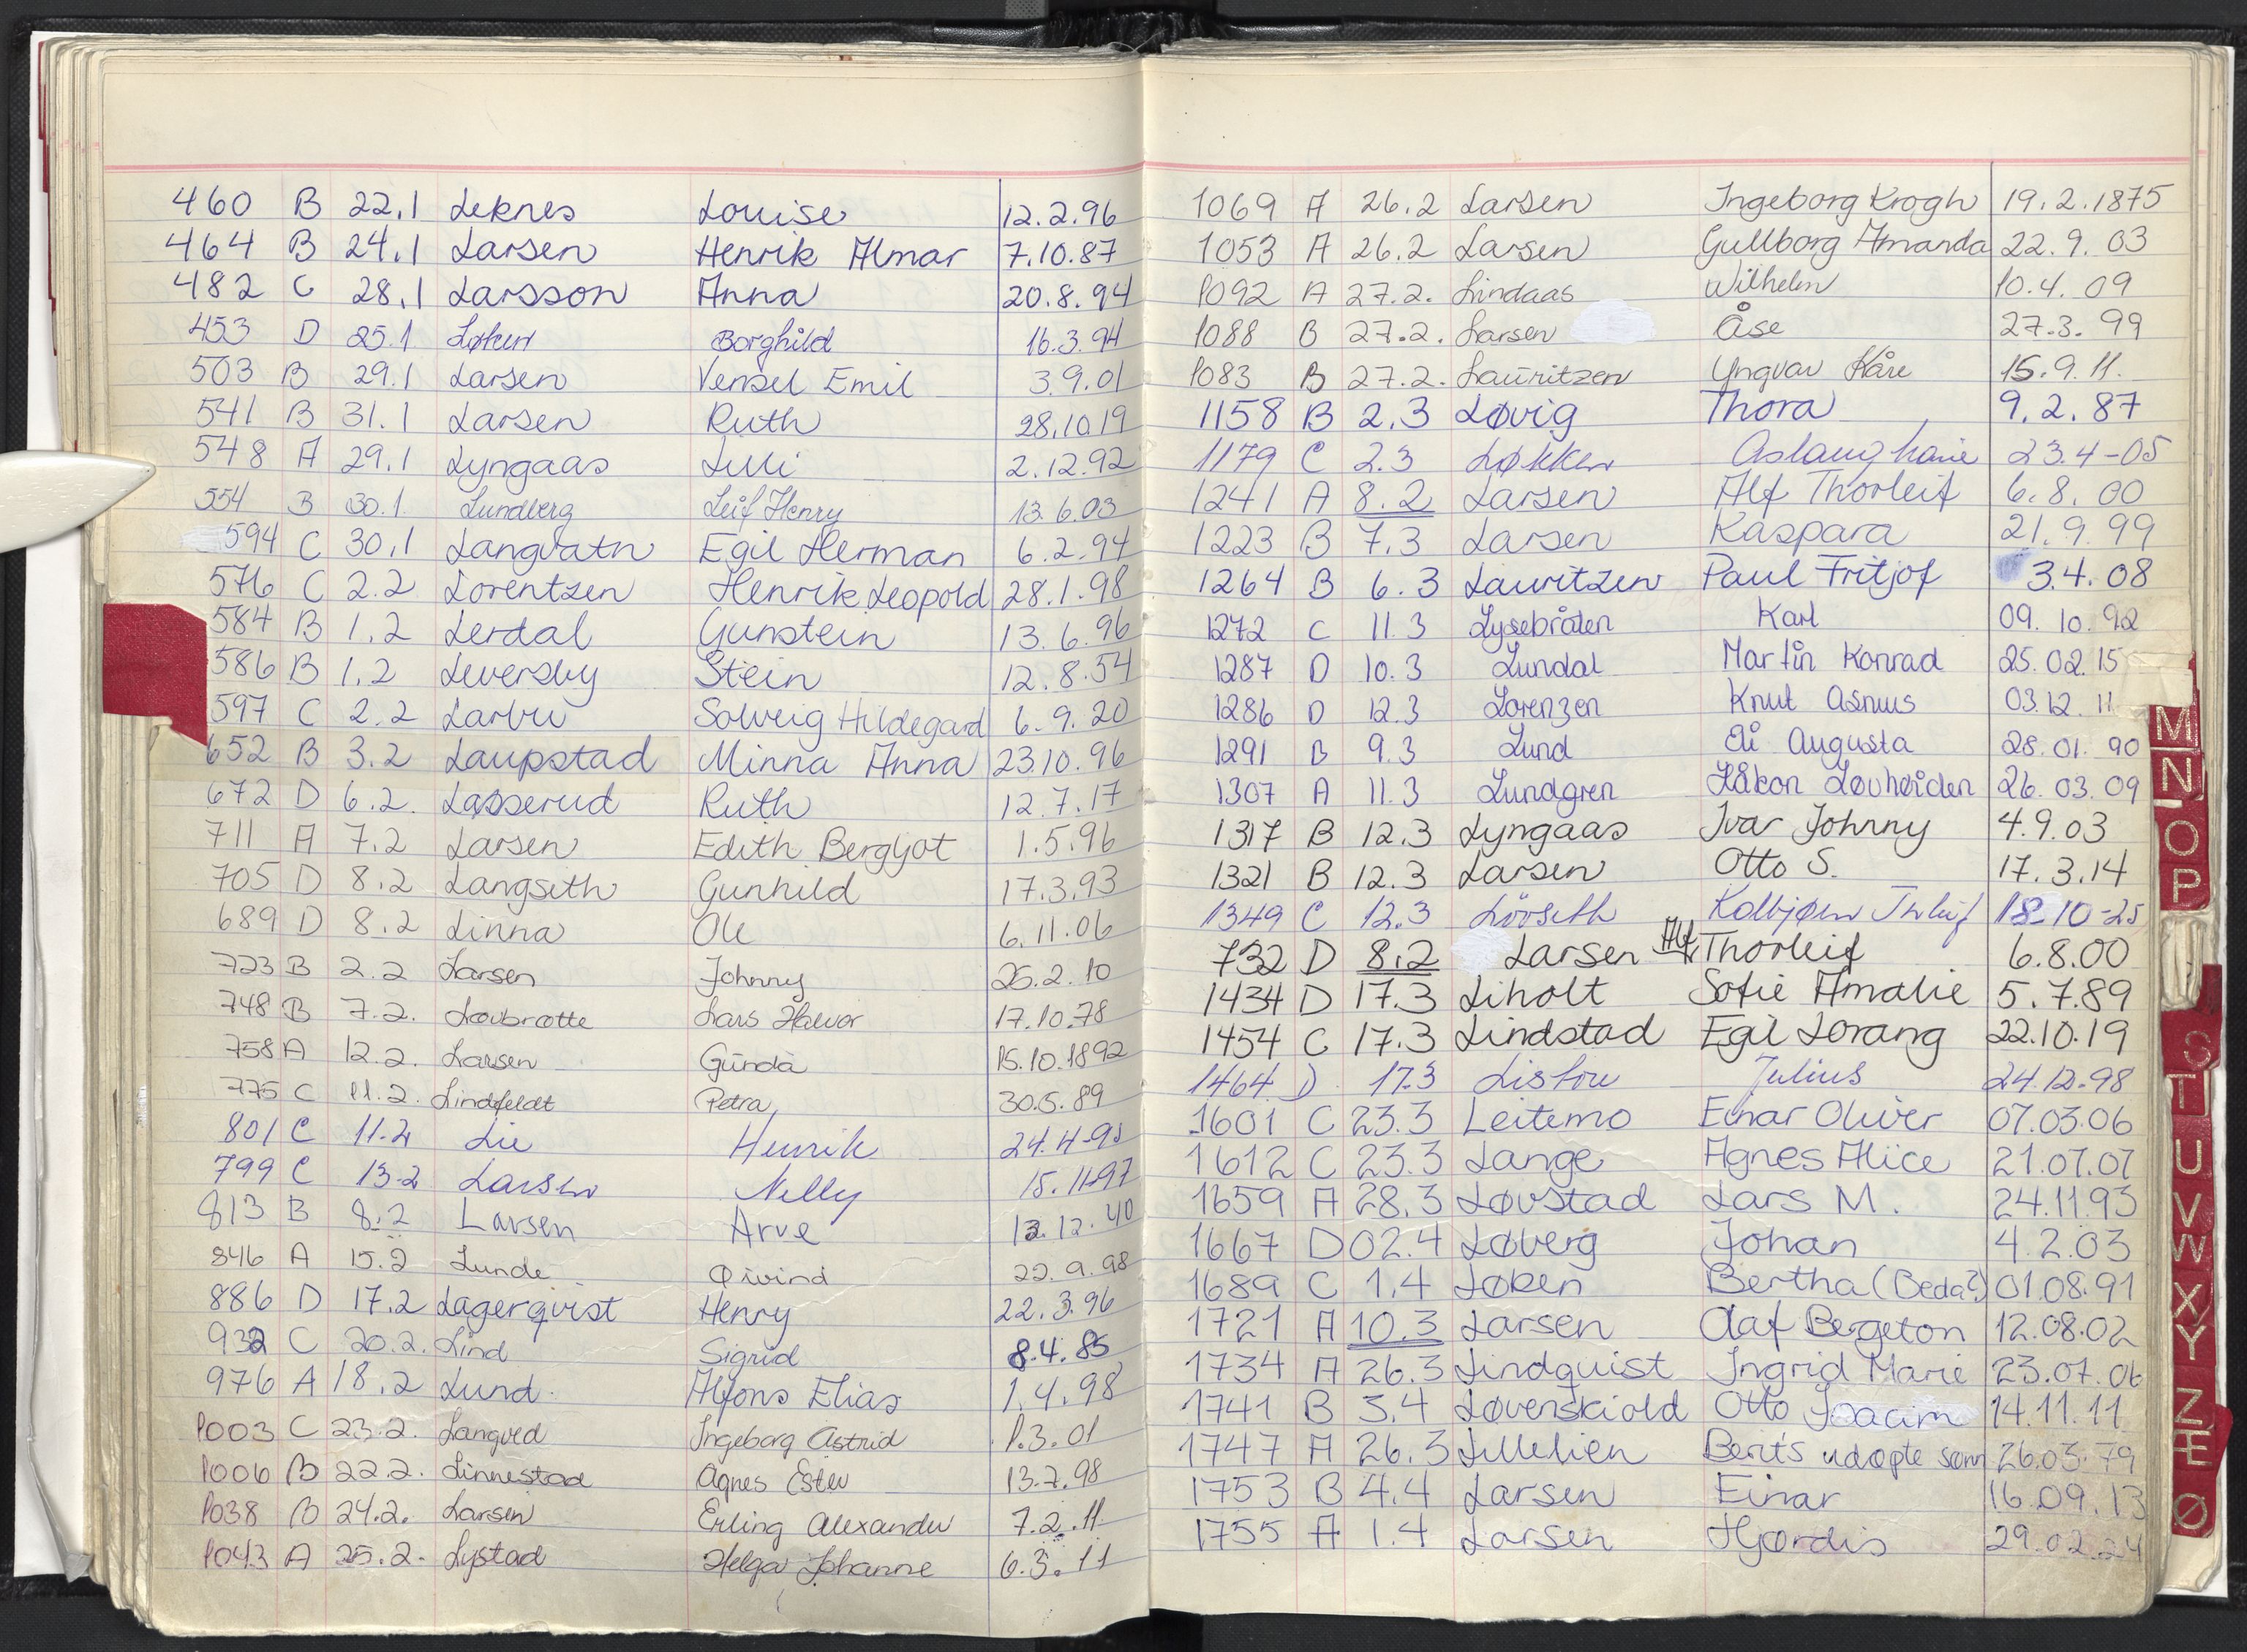 460 B 22.1 Leknes Louise 12.2.96
464 B 24.1 Larsen Henrik Almar 7.10.87
482 C 28.1 Larsson Anna 20.8.94
453 D 25.1 Løken Borghild 16.3.94
503 B 29.1 Larsen Vensel Emil 3.9.01
541 B 31.1 Larsen Ruth 28.10.19
548 A 29.1 Lyngaas Lilli 2.12.92
554 B 30.1 Lundberg Leif Henry 13.6.03
594 C 30.1 Langvatn Egil Herman 6.2.94
576 C 2.2 Lorentzen Henrik Leopold 28.1.98
584 B 1.2 Lerdal Gunstein 13.6.96
586 B 1.2 Leversby Stein 12.8.54
597 C 2.2 Solveig Hildegard 6.9.20
652 B 3.2 Laupstad Minna Anna 23.10.96
672 D 6.2. Lasserud Ruth 12.7.17
711 A 7.2 Larsen Edith Bergljot 1.5.96
705 D 8.2 Langseth Gunhild 17.3.93
689 D 8.2 Linna Ole 6.11.06
723 B 2.2 Larsen Johnny 25.2.10
748 B 7.2. Løvbrøtte Lars Halvor 17.10.78
758 A 12.2. Larsen Gunda 15.10.1892
775 C 11.2. Lindfeldt Petra 30.5.89
801 C 11.2 Lie Henrik
799 C 13.2 Larsen Nelly 15.11.97
813 B 8.2 Larsen Arve 13.12.40
846 A 15.2 Lunde Øivind 22.9.98
886 D 17.2 Lagerqvist Henry 22.3.96
932 C 20.2. Lind Sigrid 8.4.85
976 A 18.2 Lund Alfons Elias 1.4.98
1003 C 23.2. Langved Ingeborg Astrid 1.3.01
1006 B 22.2. Linnestad Agnes Ester 13.7.98
1038 B 24.2. Larsen Erling Alexander 7.2.11
1043 A 25.2. Lystad Helga Johanne 6.3.11
1069 A 26.2 Larsen Ingeborg Krogh 19.2.1875
1053 A 26.2 Larsen Gullborg Amanda 22.9.03
1092 A 27.2. Lindaas Wilhelm 10.4.09
1088 B 27.2. Larsen Åse 27.3.99
1083 B 27.2. Lauritzen Yngvar Kåre 15.9.11.
1158 B 2.3 Løvig Thora 9.2.87
1179 C 2.3 Løkken Aslaug 23.4-05
1241 A 8.2 Larsen Alf Thorleif 6.8.00
1223 B 7.3 Larsen Kaspara 21.9.99
1264 B 6.3 Lauritzen Paul Fritjof 3.4.08
1272 C 11.3 Lysebråten Karl 09.10.92
1287 D 10.3 Lundal Martin Konrad 25.02.15
1286 D 12.3 Lorenzen Knut Asmus 03.12.11
1291 B 9.3 Lund Augusta 28.01.90
1307 A 11.3 Lundgren Håkon Løvheiden 26.03.09
1317 B 12.3 Lyngaas Ivar Johnny 4.9.03
1321 B 12.3 Larsen Otto S. 17.3.14
1349 C 12.3 Lövseth Kolbjørn 18-10-25
732 D 8.2 Larsen Alf Thorleif 6.8.00
1434 D 17.3 Liholt Sofie Amalie 5.7.89
1454 C 17.3 Lindstad Egil Lorang 22.10.19
1464 D 17.3 Listou Julius 24.12.98
1601 C 23.3 Leitemo Einar Oliver 07.03.06
1612 C 23.3 Lange Agnes Alice 21.07.07
1659 A 28.3 Løvstad Lars M. 24.11.93
1667 D 02.4 Løberg Johan 4.2.03
1689 C 1.4 Løken Bertha (Beda?) 01.08.91
1721 A 10.3 Larsen Olaf Bergeton 12.08.02
1734 A 26.3 Lindquist Ingrid Marie 23.07.06
1741 B 3.4 Løvenskiold Otto Joacim 14.11.11
1747 A 26.3 Lillelien Berit's udøpte sønn 26.03.79
1753 B 4.4 Larsen Einar 16.09.13
1755 A 1.4 Larsen Hjørdis 29.02.24
M
N
O
P
S
T
U
V
W
X
Y
Z
Æ
Ø